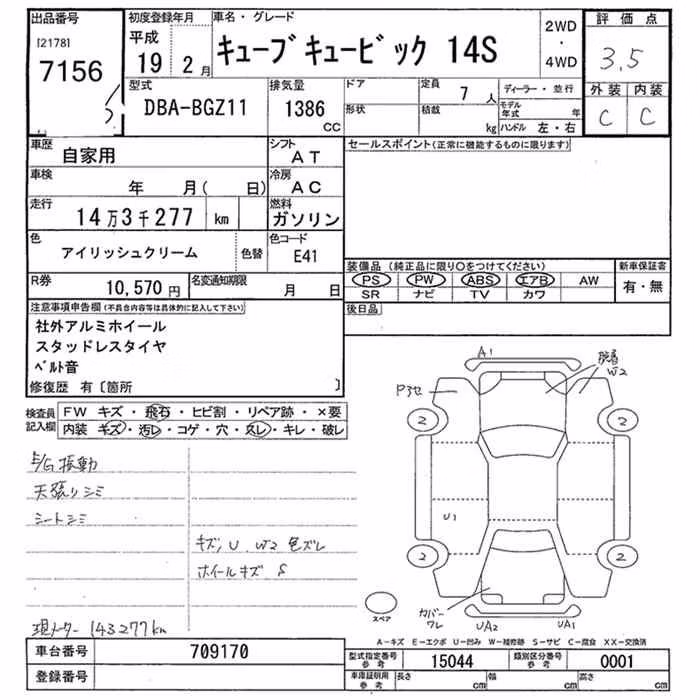 出品番号
[2178]
7156
初度登録年月
平成
19 2 月
車名・グレード
キューブキュービック 14S
2WD
・
4WD
評価点
3.5
外装 内装
C C
型式
DBA-BGZ11
排気量
1386
CC
ドア
形状
定員
7 人
積載
kg
ディーラー・並行
モデル
年式 年
ハンドル 左・右
車歴
自家用
シフト
AT
車検
年 月( 日)
冷房
AC
走行
14万3千277 km
燃料
ガソリン
色
アイリッシュクリーム
色替
色コード
E41
R券
10,570 円
名変通知期限
月 日
セールスポイント(正常に機能するものに限ります)
装備品 (純正品に限り○をつけてください)
PS PW ABS エアB AW
SR ナビ TV カワ
新車保証書
有・無
後日品
注意事項申告欄(不具合内容等は具体的に記入して下さい)
社外アルミホイール
スタッドレスタイヤ
ベルト音
修復歴 有〔箇所 〕
検査員
記入欄
FW キズ・飛石・ヒビ割・リペア跡・×要
内装 キズ・汚レ・コゲ・穴・スレ・キレ・破レ
E/G振動
天張リシミ
シートシミ
キズ, U W2 色ズレ
ホイールキズ S
現メーター 143277km
A1
W2
Pヨセ
2
2
U1
2
2
カバー
ワレ
UA2
UA1
スペア
A−キズ E−エクボ U−凹み W−補修跡 S−サビ C−腐食 XX−交換済
車台番号
709170
登録番号
型式指定番号
参考
15044
類別区分番号
参考
0001
車庫証明用
参考
長さ cm
幅 cm
高さ cm